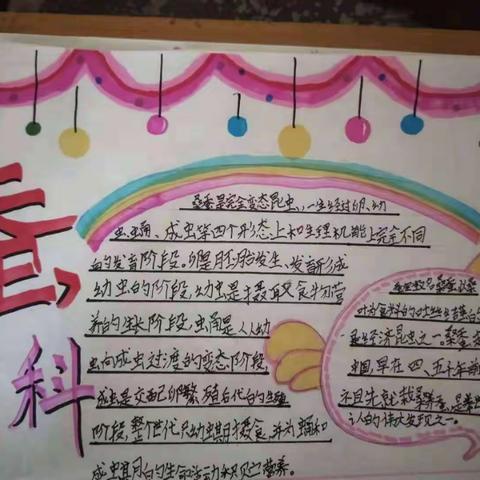 蚕
科
桑蚕是完全变态昆虫,一生经过卵、幼
虫、蛹、成虫等四个形态上和生理机能上完全不同
的发育阶段。卵是胚胎发生、发育形成
幼虫的阶段,幼虫是摄取食物营
养的生长阶段,虫蛹是从幼
虫向成虫过渡的变态阶段,
成虫是交配卵繁殖后代的生殖
阶段,整个世代只幼虫期摄食,并为蛹和
成虫期的生命活动积贮营养。
桑蚕
叶为食料的吐丝结茧的
经济昆虫之一。桑蚕,
中国,早在四、五千年前
祖先就栽桑养蚕,是
认的伟大发现之一。